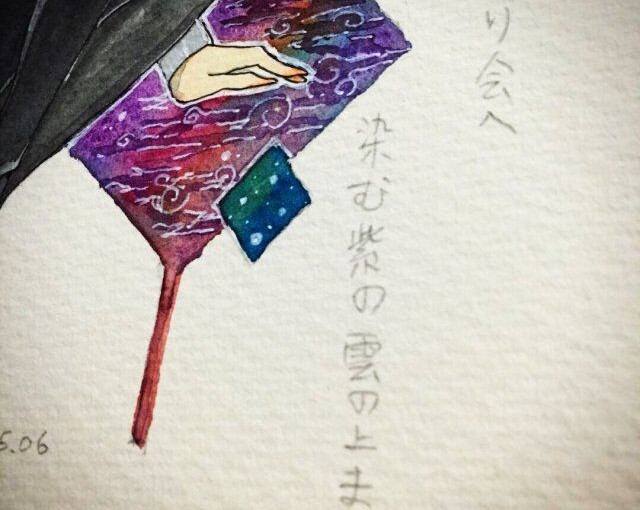 り会へ
染む紫の雲の上ま
5.06